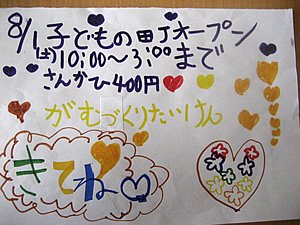 8/1 子どもの町オープン
(土)10:00〜3:00まで
さんかひ400円
がむづくりたいけん
きてね